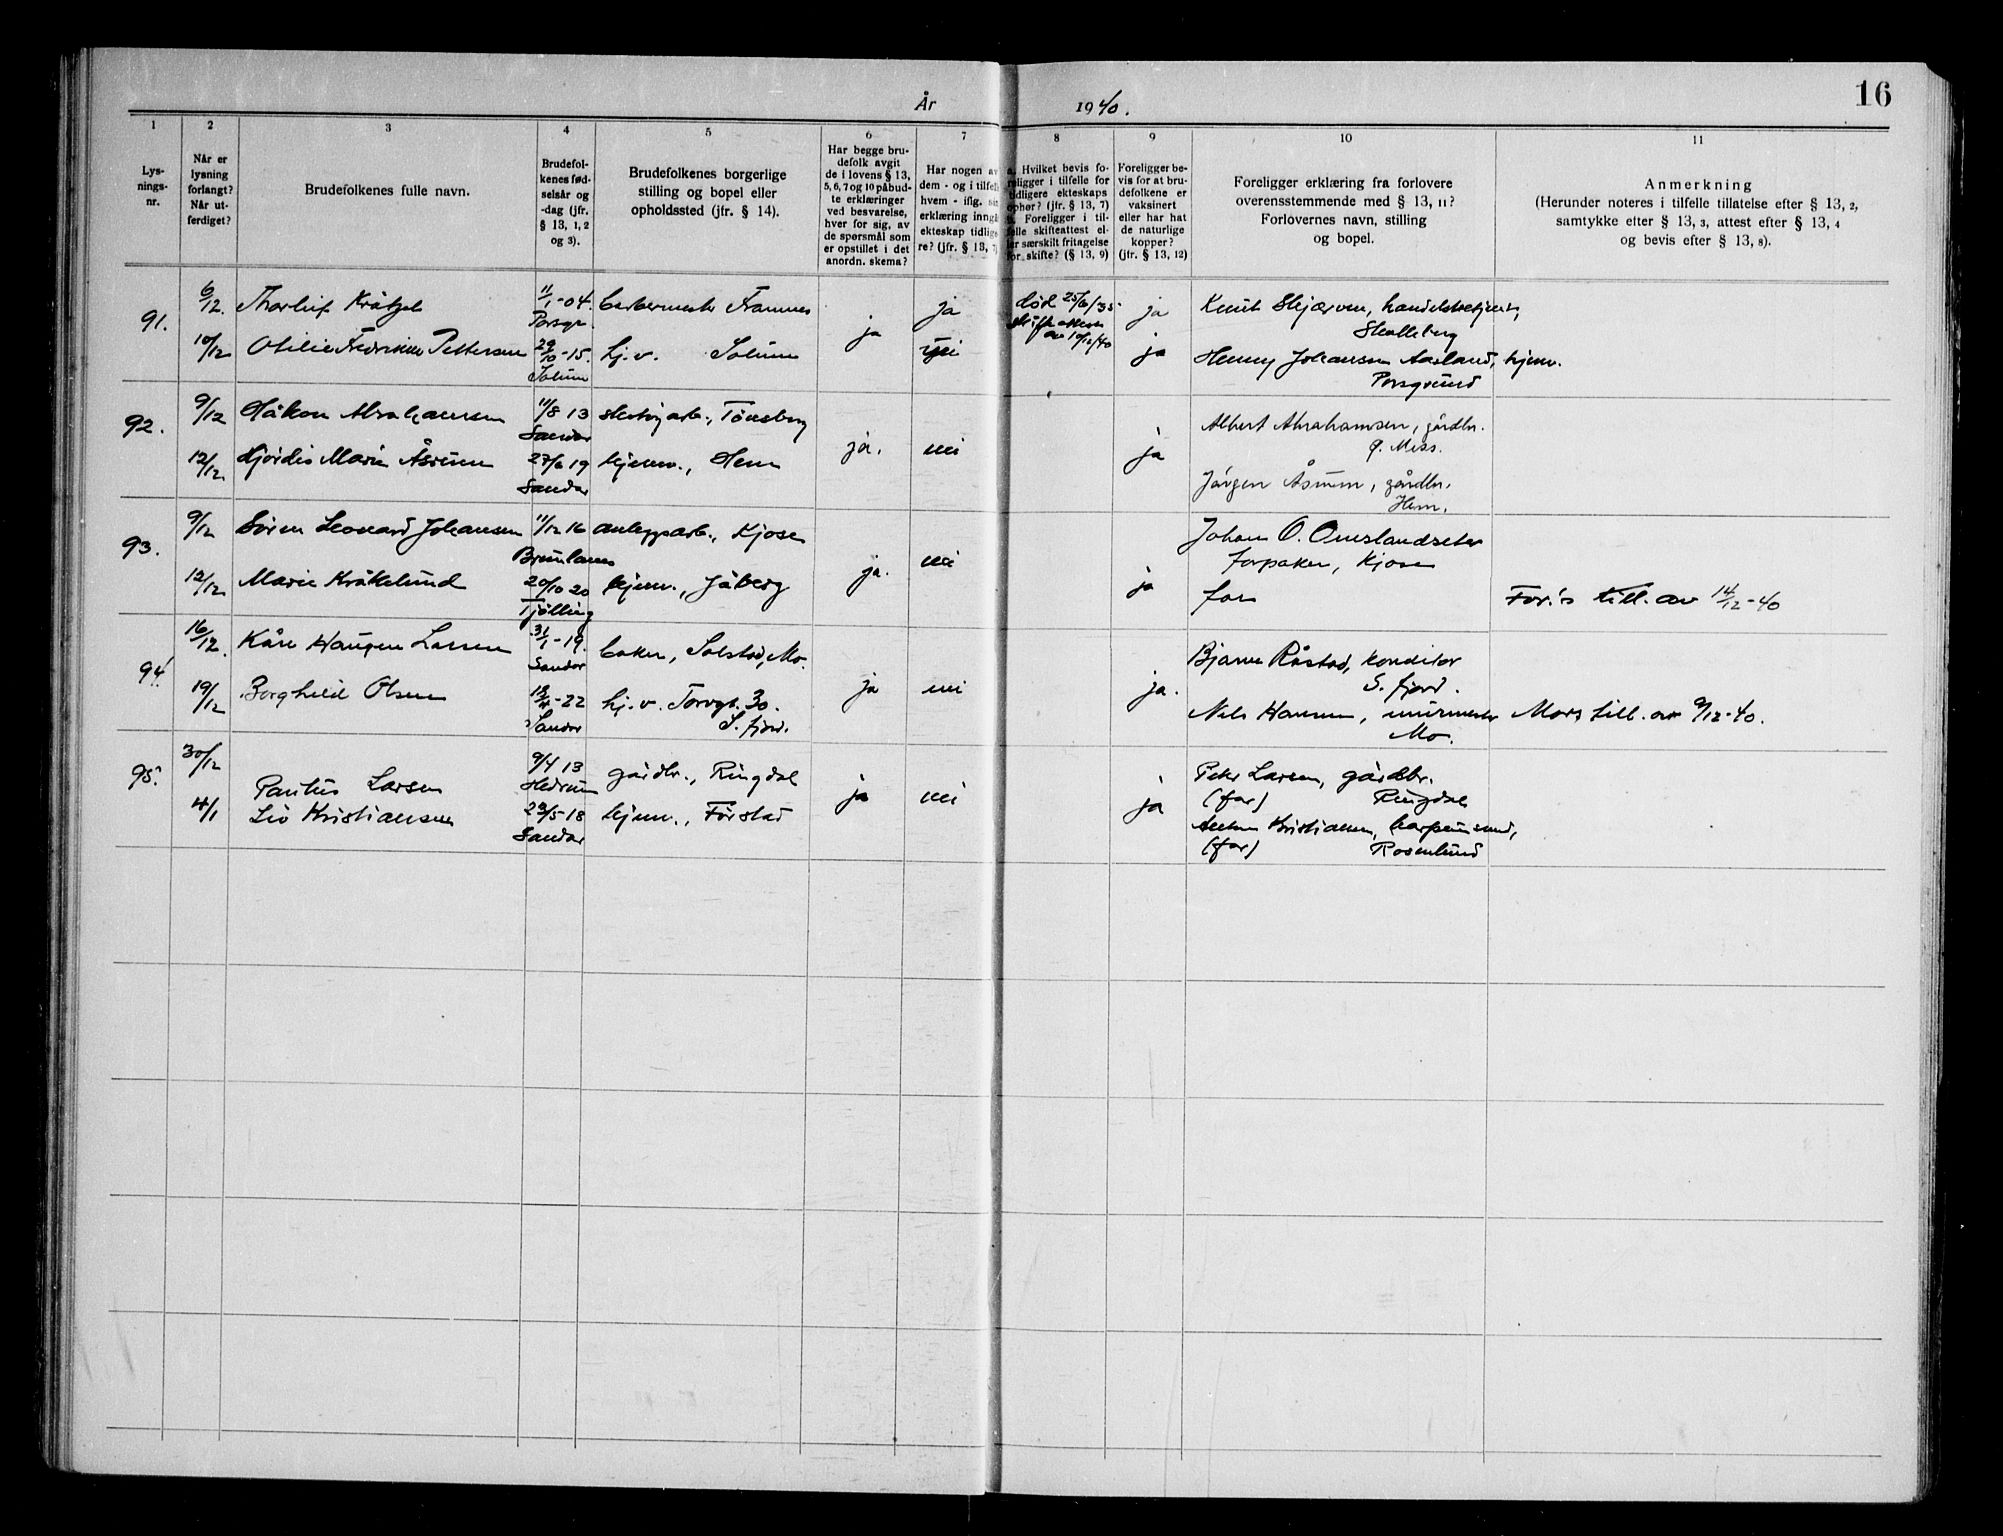 År 1940.
16
1 2 3 4 5 6 7 8 9 10 11
Lys-
nings-
nr.
Når er
lysning
forlangt?
Når ut-
ferdiget?
Brudefolkenes fulle navn.
Brudefol-
kenes fød-
selsår og
-dag (jfr.
§ 13, 1, 2
og 3).
Brudefolkenes borgerlige
stilling og bopel eller
opholdssted (jfr. § 14).
Har begge bru-
defolk avgit
de i lovens § 13,
5, 6, 7 og 10 påbud-
te erklæringer
ved besvarelse,
hver for sig, av
de spørsmål som
er opstillet i det
anordn. skema?
Har nogen av
dem - og i tilfelle
hvem - iflg. sin
erklæring inngå
ekteskap tidlige
re? (jfr. § 13, 7)
a. Hvilket bevis fo-
religger i tilfelle for
tidligere ekteskaps
ophør? (jfr. § 13, 7)
Foreligger i til-
felle skifteattest el-
ler særskilt fritagelse
for skifte? (§ 13, 9)
Foreligger be-
vis for at bru-
defolkene er
vaksinert
eller har hat
de naturlige
kopper?
(jfr. § 13, 12)
Foreligger erklæring fra forlovere
overensstemmende med § 13, 11?
Forlovernes navn, stilling
og bopel.
Anmerkning
(Herunder noteres i tilfelle tillatelse efter § 13, 2,
samtykke efter § 13, 3, attest efter § 13, 4
og bevis efter § 13, 8).
91.
6/12. Thorleif Krätzel 11/1-04. barbermester Framnes ja død 25/6/35 ja Knut Skjærven, handelsbetjent,
Porsgr. ja skifteattest av 10/12/40 Skolleborg
10/12 Otilie Fredrikke Pettersen 29/10-15. hj.v. Solum nei ja Henny Johansen Aasland, hjemv.
Solum Porsgrund
92.
9/12 Håkon Abrahamsen 11/8 13 skotøyarb., Tønsberg Albert Abrahamsen, gårdbr.
Sandar ja. nei ja
12/12 Hjördis Marie Åsrum 27/6 19 hjemv., Hem Jørgen Åsrum, gårdbr.
Sandar Hem.
93.
9/12 Søren Leonard Johansen 11/12 16 anleggsarb., Kjose Johan O. Omslandseter
Brunlanes ja. nei ja forpakter, Kjose
12/12 Marie Kråkelund 20/10 20 hjemv., Jåberg far For.'s till. av 14/12-40
Tjølling
94.
16/12. Kåre Haugen Larsen 31/1-19. baker, Solstad, Mo. Bjarne Råstad, konditor
Sandar ja nei ja. S. fjord.
19/12 Borghild Olsen 18/4-22 hj.v. Torvgt. 30. Nils Hansen, murmester Mors till. av 9/12-40.
Sandar S. fjord. Mo.
95.
30/12 Paulus Larsen 9/4 13 gårdbr., Ringdal Peter Larsen, gårdbr.
Hedrum ja nei ja (far) Ringdal
4/1 Liv Kristiansen 23/5-18 hjemv., Førstad Anton Kristiansen, harpunsmed,
Sandar (far) Rosenlund